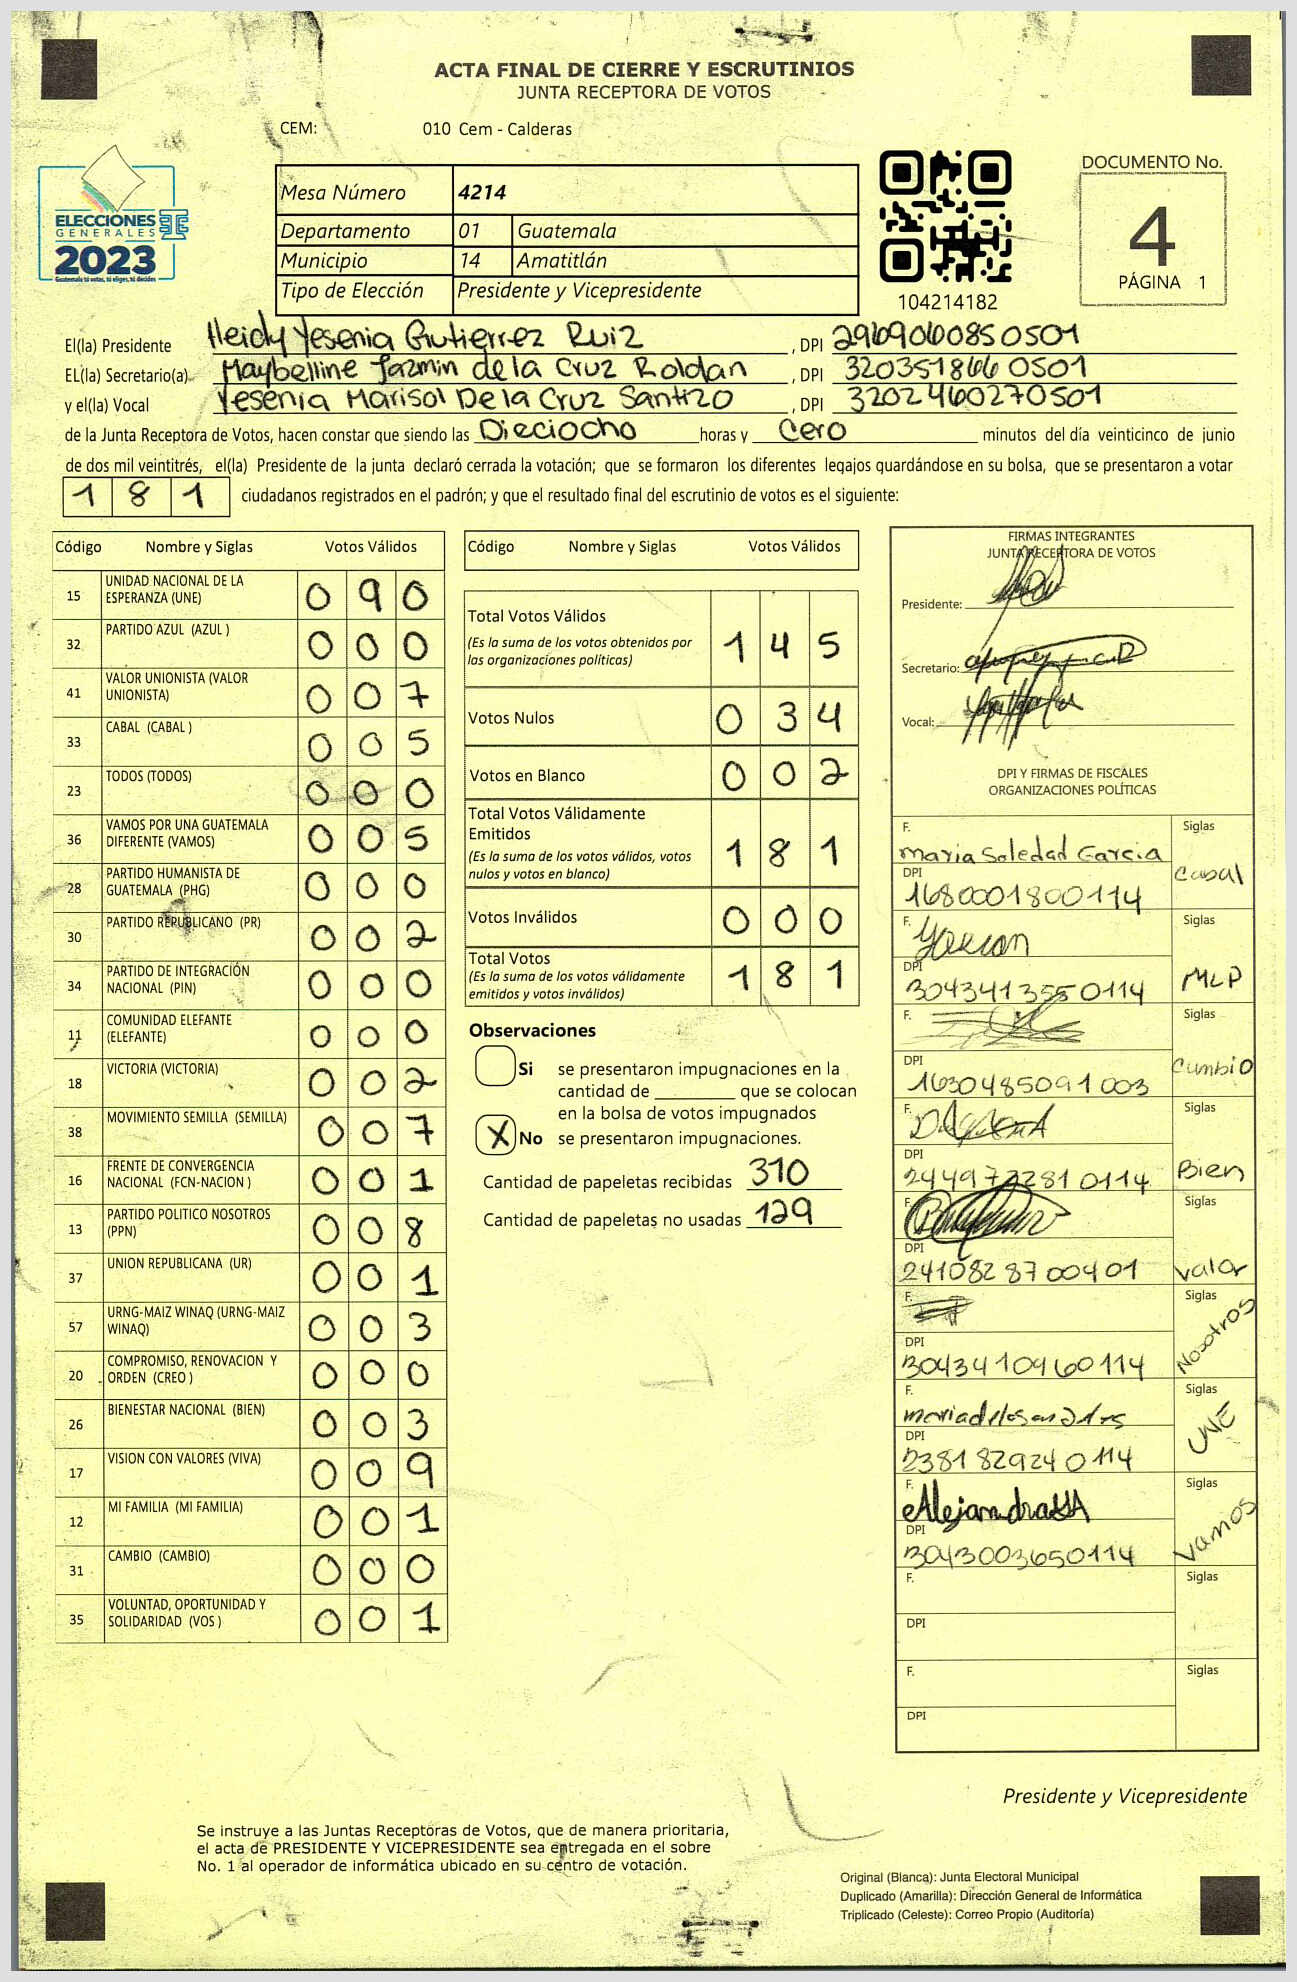 ACTA FINAL DE CIERRE Y ESCRUTINIOS
JUNTA RECEPTORA DE VOTOS
CEM: 010 Cem - Calderas
ELECCIONES
GENERALES
2023
Guatemala tú votas, tú eliges, tú decides
Mesa Número 4214
Departamento 01 Guatemala
Municipio 14 Amatitlán
Tipo de Elección Presidente y Vicepresidente
104214182
DOCUMENTO No.
4
PÁGINA 1
El(la) Presidente Heidy Yesenia Gutierrez Ruiz , DPI 2969060850501
EL(la) Secretario(a) Maybelline Jazmin de la Cruz Roldan , DPI 3203518660501
y el(la) Vocal Yesenia Marisol De la Cruz Santizo , DPI 3202460270501
de la Junta Receptora de Votos, hacen constar que siendo las Dieciocho horas y Cero minutos del día veinticinco de junio
de dos mil veintitrés, el(la) Presidente de la junta declaró cerrada la votación; que se formaron los diferentes legajos quardándose en su bolsa, que se presentaron a votar
181 ciudadanos registrados en el padrón; y que el resultado final del escrutinio de votos es el siguiente:
Código Nombre y Siglas Votos Válidos
15 UNIDAD NACIONAL DE LA ESPERANZA (UNE) 0 9 0
32 PARTIDO AZUL (AZUL ) 0 0 0
41 VALOR UNIONISTA (VALOR UNIONISTA) 0 0 7
33 CABAL (CABAL ) 0 0 5
23 TODOS (TODOS) 0 0 0
36 VAMOS POR UNA GUATEMALA DIFERENTE (VAMOS) 0 0 5
28 PARTIDO HUMANISTA DE GUATEMALA (PHG) 0 0 0
30 PARTIDO REPUBLICANO (PR) 0 0 2
34 PARTIDO DE INTEGRACIÓN NACIONAL (PIN) 0 0 0
11 COMUNIDAD ELEFANTE (ELEFANTE) 0 0 0
18 VICTORIA (VICTORIA) 0 0 2
38 MOVIMIENTO SEMILLA (SEMILLA) 0 0 7
16 FRENTE DE CONVERGENCIA NACIONAL (FCN-NACION ) 0 0 1
13 PARTIDO POLITICO NOSOTROS (PPN) 0 0 8
37 UNION REPUBLICANA (UR) 0 0 1
57 URNG-MAIZ WINAQ (URNG-MAIZ WINAQ) 0 0 3
20 COMPROMISO, RENOVACION Y ORDEN (CREO ) 0 0 0
26 BIENESTAR NACIONAL (BIEN) 0 0 3
17 VISION CON VALORES (VIVA) 0 0 9
12 MI FAMILIA (MI FAMILIA) 0 0 1
31 CAMBIO (CAMBIO) 0 0 0
35 VOLUNTAD, OPORTUNIDAD Y SOLIDARIDAD (VOS ) 0 0 1
Código Nombre y Siglas Votos Válidos
Total Votos Válidos 1 4 5
(Es la suma de los votos obtenidos por
las organizaciones políticas)
Votos Nulos 0 3 4
Votos en Blanco 0 0 2
Total Votos Válidamente
Emitidos 1 8 1
(Es la suma de los votos válidos, votos
nulos y votos en blanco)
Votos Inválidos 0 0 0
Total Votos 1 8 1
(Es la suma de los votos válidamente
emitidos y votos inválidos)
Observaciones
Si se presentaron impugnaciones en la
cantidad de que se colocan
en la bolsa de votos impugnados
X No se presentaron impugnaciones.
Cantidad de papeletas recibidas 310
Cantidad de papeletas no usadas 129
FIRMAS INTEGRANTES
JUNTA RECEPTORA DE VOTOS
Presidente:
Secretario:
Vocal:
DPI Y FIRMAS DE FISCALES
ORGANIZACIONES POLÍTICAS
F. Maria Soledad Garcia Siglas
DPI 1680001800114 Cabal
F. Siglas
DPI 3043413550114 MLP
F. Siglas
DPI 1630485091003 Cambio
F. Siglas
DPI 2449732810114 Bien
F. Siglas
DPI 2410828700401 Valor
F. Siglas
DPI 3043410960114 Nosotros
F. Siglas
DPI 2381829240114 UNE
F. Siglas
DPI 3043003650114 Vamos
F. Siglas
DPI
F. Siglas
DPI
Presidente y Vicepresidente
Se instruye a las Juntas Receptoras de Votos, que de manera prioritaria,
el acta de PRESIDENTE Y VICEPRESIDENTE sea entregada en el sobre
No. 1 al operador de informática ubicado en su centro de votación.
Original (Blanca): Junta Electoral Municipal
Duplicado (Amarilla): Dirección General de Informática
Triplicado (Celeste): Correo Propio (Auditoría)